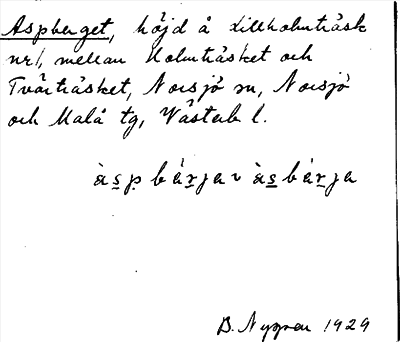 Aspberget, höjd å Lillholmträsk
nr 1, mellan Holmträsket och
Tvärträsket, Norsjö sn, Norsjö
och Malå tg, Västerb l.
às̲p̲ bár̲ja ~ às̲bár̲ja
B. Nygren 1929